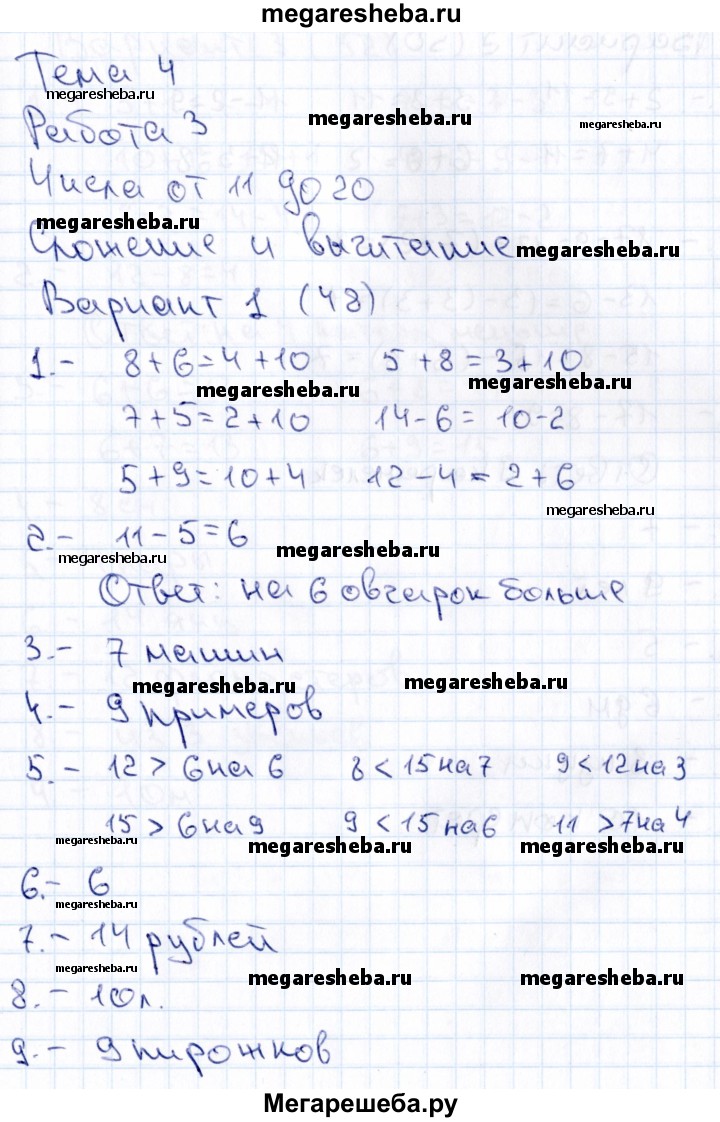 megaresheba.ru
Тема 4
megaresheba.ru
Работа 3
megaresheba.ru
megaresheba.ru
Числа от 11 до 20
megaresheba.ru
Сложение и вычитание
megaresheba.ru
Вариант 1 (48)
1.- 8+6=4+10 5+8=3+10
megaresheba.ru
megaresheba.ru
7+5=2+10 14-6=10-2
5+9=10+4 12-4=2+6
megaresheba.ru
2.- 11-5=6
megaresheba.ru
megaresheba.ru
Ответ: на 6 овчарок больше
3.- 7 машин
megaresheba.ru
megaresheba.ru
4.- 9 примеров
5.- 12 > 6 на 6 8 < 15 на 7 9 < 12 на 3
15 > 6 на 9 9 < 15 на 6 11 > 7 на 4
megaresheba.ru
megaresheba.ru
megaresheba.ru
6.- 6
megaresheba.ru
7.- 14 рублей
megaresheba.ru
megaresheba.ru
megaresheba.ru
8.- 10 л.
9.- 9 пирожков
Мегарешеба.ру